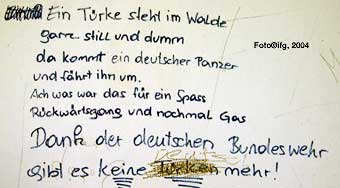 Ein Türke steht im Walde
ganz still und dumm
Foto@ifg, 2004
da kommt ein deutscher Panzer
und fährt ihn um.
Ach was war das für ein Spass
Rückwärtsgang und nochmal Gas
Dank der deutschen Bundeswehr
gibt es keine Türken mehr!